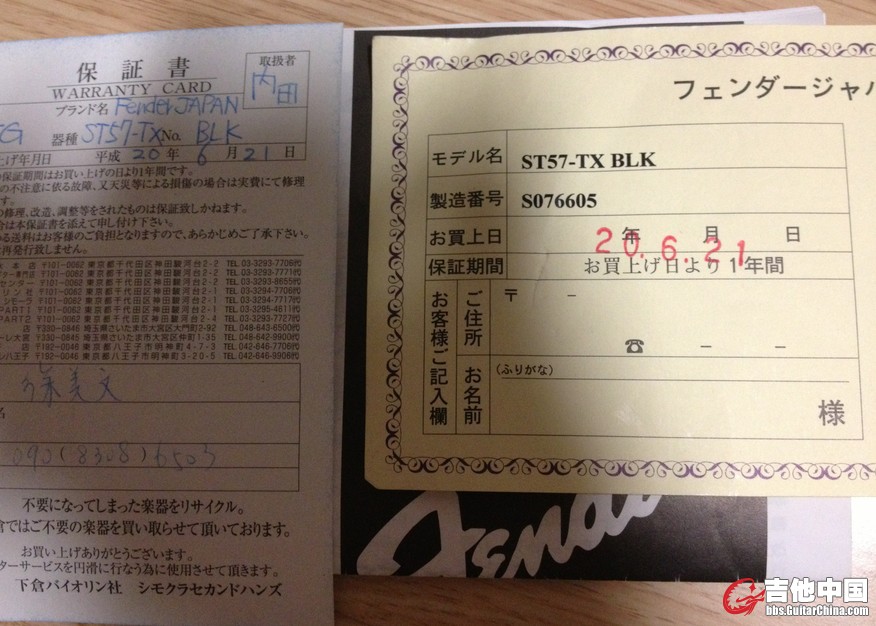 保証書
WARRANTY CARD
取扱者
内田
ブランド名 Fender JAPAN
器種 ST57-TX No. BLK
上げ年月日 平成 20 年 6 月 21 日
保証期間はお買い上げの日より1年間です。
の不注意に依る故障、又天災等による損傷の場合は実費にて修理
す。
の修理、改造、調整等をされたものは保証致しかねます。
合は本保証書を添えて申し付け下さい。
る送料はお客様のご負担となりますので、あらかじめご了承下さい。
再発行致しません。
本店 〒101-0062 東京都千代田区神田駿河台2-2 TEL.03-3293-7706代
ター専門店 〒101-0062 東京都千代田区神田駿河台2-2 TEL.03-3293-7771代
センター 〒101-0062 東京都千代田区神田駿河台2-2 TEL.03-3293-8655代
リン社 〒101-0062 東京都千代田区神田駿河台
シモーラ 〒101-0062 東京都千代田区神田駿河台2-1 TEL.03-3294-7717代
PART1 〒101-0062 東京都千代田区神田駿河台2-1 TEL.03-3295-4611代
PART2 〒101-0062 東京都千代田区神田駿河台2-2 TEL.03-3293-7727代
店 〒330-0846 埼玉県さいたま市大宮区大門町2-92 TEL.048-643-6500代
ーレ大宮 〒330-0845 埼玉県さいたま市大宮区仲町1-35 TEL.048-642-9900代
店 〒192-0046 東京都八王子市明神町4-7-3 TEL.042-646-7706代
ン八王子 〒192-0046 東京都八王子市明神町3-20-5 TEL.042-646-9906代
徐美文
名
090(8308)6503
不要になってしまった楽器をリサイクル。
倉ではご不要の楽器を買い取らせて頂いております。
お買い上げありがとうございます。
ターサービスを円滑に行なう為に使用させて頂きます。
下倉バイオリン社 シモクラセカンドハンズ
フェンダージャパ
モデル名 ST57-TX BLK
製造番号 S076605
お買上日 年 月 日
20.6.21
保証期間 お買上げ日より1年間
お客様ご記入欄
ご住所
〒 －
☎ － －
お名前
(ふりがな)
様
Fender
吉他中国
bbs.GuitarChina.com